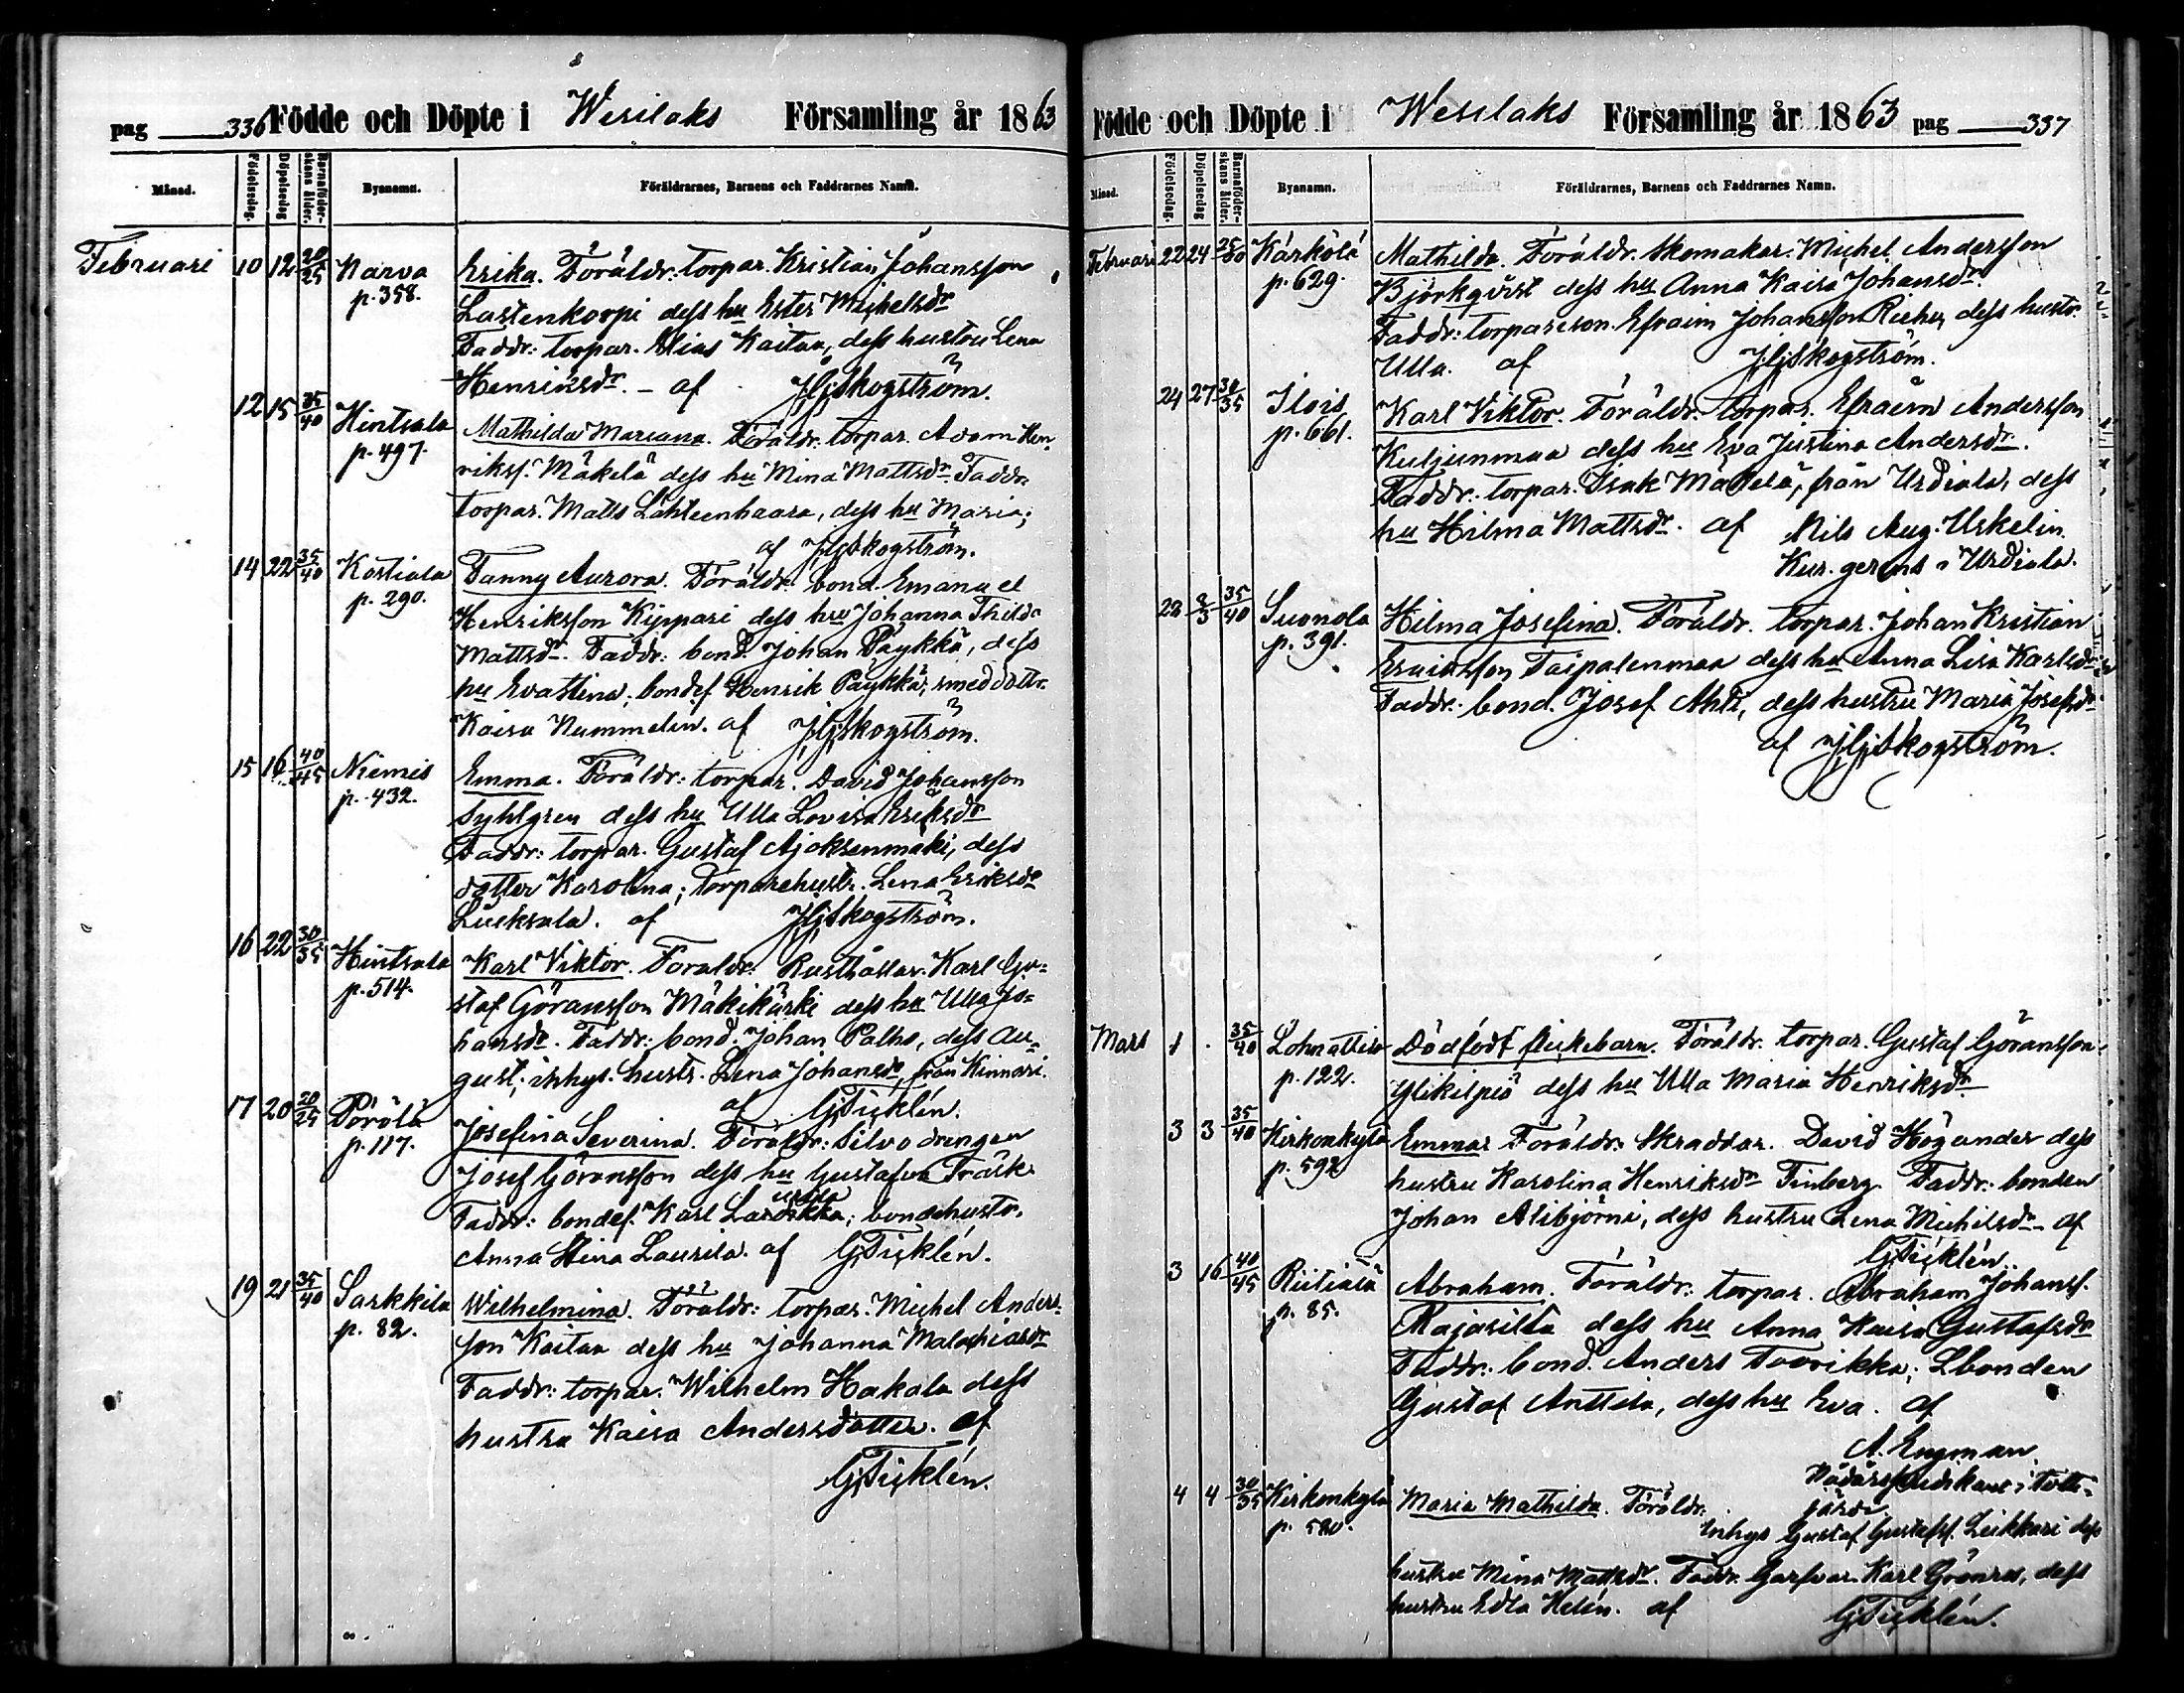 pag 336 Födde och Döpte i Wesilaks Församling år 1863
Månad. Födelsedag. Döpelsedag Barnaföder-skans ålder. Byanamn. Föräldrarnes, Barnens och Faddrarnes Namn.
Februari 10 12 20/25 Narva Erika. Föräldr. torpar. Kristian Johansson
p. 358. Lastenkorpi dess hu Ester Michelsdr
Faddr: torpar. Elias Kaitaa, dess hustru Lena
Henriksdr. - af JGSkogström.
12 15 35/40 Hintsala Mathilda Mariana. Föräldr. torpar. Adam Hen-
p. 497. rikss. Mäkelä dess hu Mina Mattsdr. Faddr.
torpar. Matts Lähteenhaara, dess hu Maria;
af JGSkogström.
14 22 35/40 Kostiala Fanny Aurora. Föräldr. bond. Emanuel
p. 290. Henriksson Kippari dess hu Johanna Thilda
Mattsdr. Faddr: bond. Johan Päykkä, dess
hu Evastina; bondes. Henrik Päykkä, smeddottr.
Kaisa Nummelin. af JGSkogström.
15 16 40/45 Niemis Emma. Föräldr: torpar. David Johansson
p. 432. Syhlgren dess hu Ulla Lovisa Eriksdr
Faddr: torpar. Gustaf Ajoksenmäki, dess
dotter Karolina; torparehustr. Lena Eriksdr
Liuksala. af JGSkogström.
16 22 30/35 Hintsala Karl Viktor. Föräldr. Rusthållar. Karl Gu=
p. 514. staf Göransson Mäkikärki dess hu Ulla Jo=
hansdr. Faddr: bond. Johan Palho, dess Au-
gust; inhys. hustr. Lena Johansdr från Kinnari.
af GTicklén.
17 20 20/25 Pörölä Josefina Severina. Föräldr: Silvo drengen
p. 117. Josef Göransson dess hu Gustafva Träsk.
Faddr: bondes. Karl; bondehustr.
Anna Stina Laurila. af GTicklén.
19 21 35/40 Sarkkila Wilhelmina. Föräldr: torpar. Michel Anders=
p. 82. son Kaitaa dess hu Johanna Malakiasdr
Faddr: torpar. Wilhelm Hakala dess
hustru Kaisa Andersdotter. af
GTicklén.
Födde och Döpte i Wesilaks Församling år 1863 pag 337
Månad. Födelsedag. Döpelsedag Barnaföder-skans ålder. Byanamn. Föräldrarnes, Barnens och Faddrarnes Namn.
Februari 22 24 25/30 Kärkölä Mathilda. Föräldr. Skomakar. Michel Andersson
p. 629. Björkqvist dess hu Anna Kaisa Johansdr.
Faddr: torpareson Efraim Johansson Riehu, dess hustr.
Ulla. af JGSkogström.
24 27 30/35 Ilois Karl Viktor. Föräldr. torpar. Efraim Andersson
p. 661. Kuljunmaa dess hu Eva Justina Andersdr.
Faddr. torpar. Isak Mäkelä, från Urdiala, dess
hu Hilma Mattsdr. af Nils Aug. Urkelin
Kur. gerens i Urdiala.
22 2/3 35/40 Suonola Hilma Josefina. Föräldr. torpar. Johan Kristian
p. 391. Ericsson Taipalenmaa dess hu Anna Lisa Karlsdr
Faddr. bond. Josef Ahti, dess hustru Maria Josefsdr
af JGSkogström.
Mars 1 . 35/40 Dödfödt flickebarn. Föräldr. torpar. Gustaf Göransson
p. 122. Ylikilpiö dess hu Ulla Maria Henriksdr
3 3 35/40 Kirkonkylä Emma. Föräldr. Skräddar. David Högander dess
p. 592 hustru Karolina Henriksdr Finberg. Faddr: bonden
Johan Alibjörni, dess hustru Lena Michelsdr. af
GTicklén.
3 16 40/45 Riitiala Abraham. Föräldr: torpar. Abraham Johanss.
p. 85. Rajasilta dess hu Anna Kaisa Gustafsdr
Faddr: bond. Anders Toorikka; Lbonden
Gustaf Anttila, dess hu Eva. af
A. Engman
Nådårspredikant i Tott-
järvi
4 4 30/35 Kirkonkylä Maria Mathilda. Föräldr.
p. 580. Inhys Gustaf Gustafss. Leikkari dess
hustru Mina Mattsdr. Faddr. Garfvar. Karl Grönros, dess
hustru Edla Helén. af GTicklén.